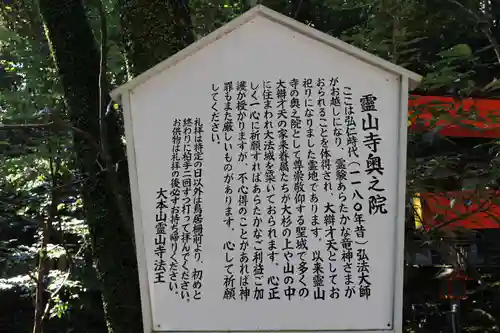 靈山寺奥之院
ここは弘仁時代(一一八〇年昔)弘法大師
がお越しになり、霊験あらたかな竜神さまが
おられることを体得され、大辯才天としてお
祀りになりました霊地であります。以来霊山
寺の奥之院として尊崇敬仰する聖地で多くの
大辯才天の家来眷属たちが大杉の上や山の中
に住まわれ大法城を築いておられます。心正
しく一心に祈願すればあらたかなご利益ご加
護が授かりますが、不心得のことがあれば神
罰もまた厳しいものがあります。心して祈願
してください。
礼拝は特定の日以外は鳥居柵前より、初めと
終わりに柏手二回ずつ打ってください。
お供物は礼拝の後必ずお持ち帰りください。
大本山霊山寺法王